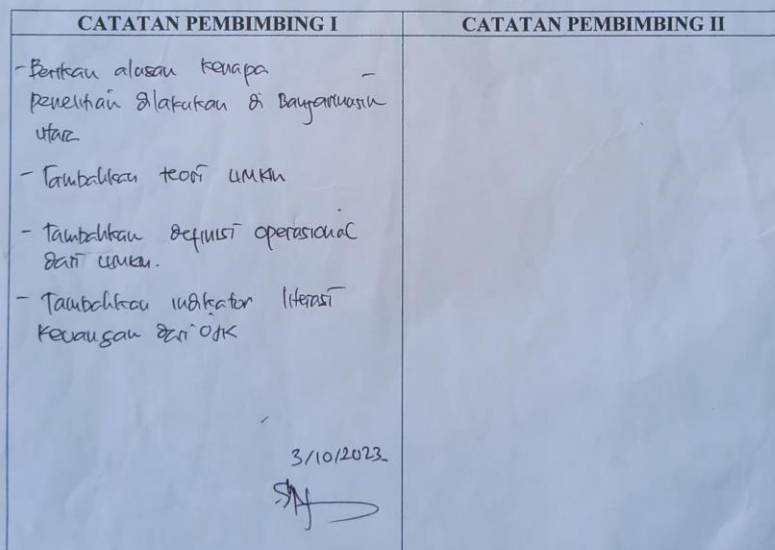 CATATAN PEMBIMBING I
CATATAN PEMBIMBING II
- Berikan alasan kenapa
penelitian dilakukan di Banjarmasin
utara
- Tambahkan teori UMKM
- Tambahkan definisi operasional
dari UMKM.
- Tambahkan indikator literasi
keuangan dari OJK
3/10/2023